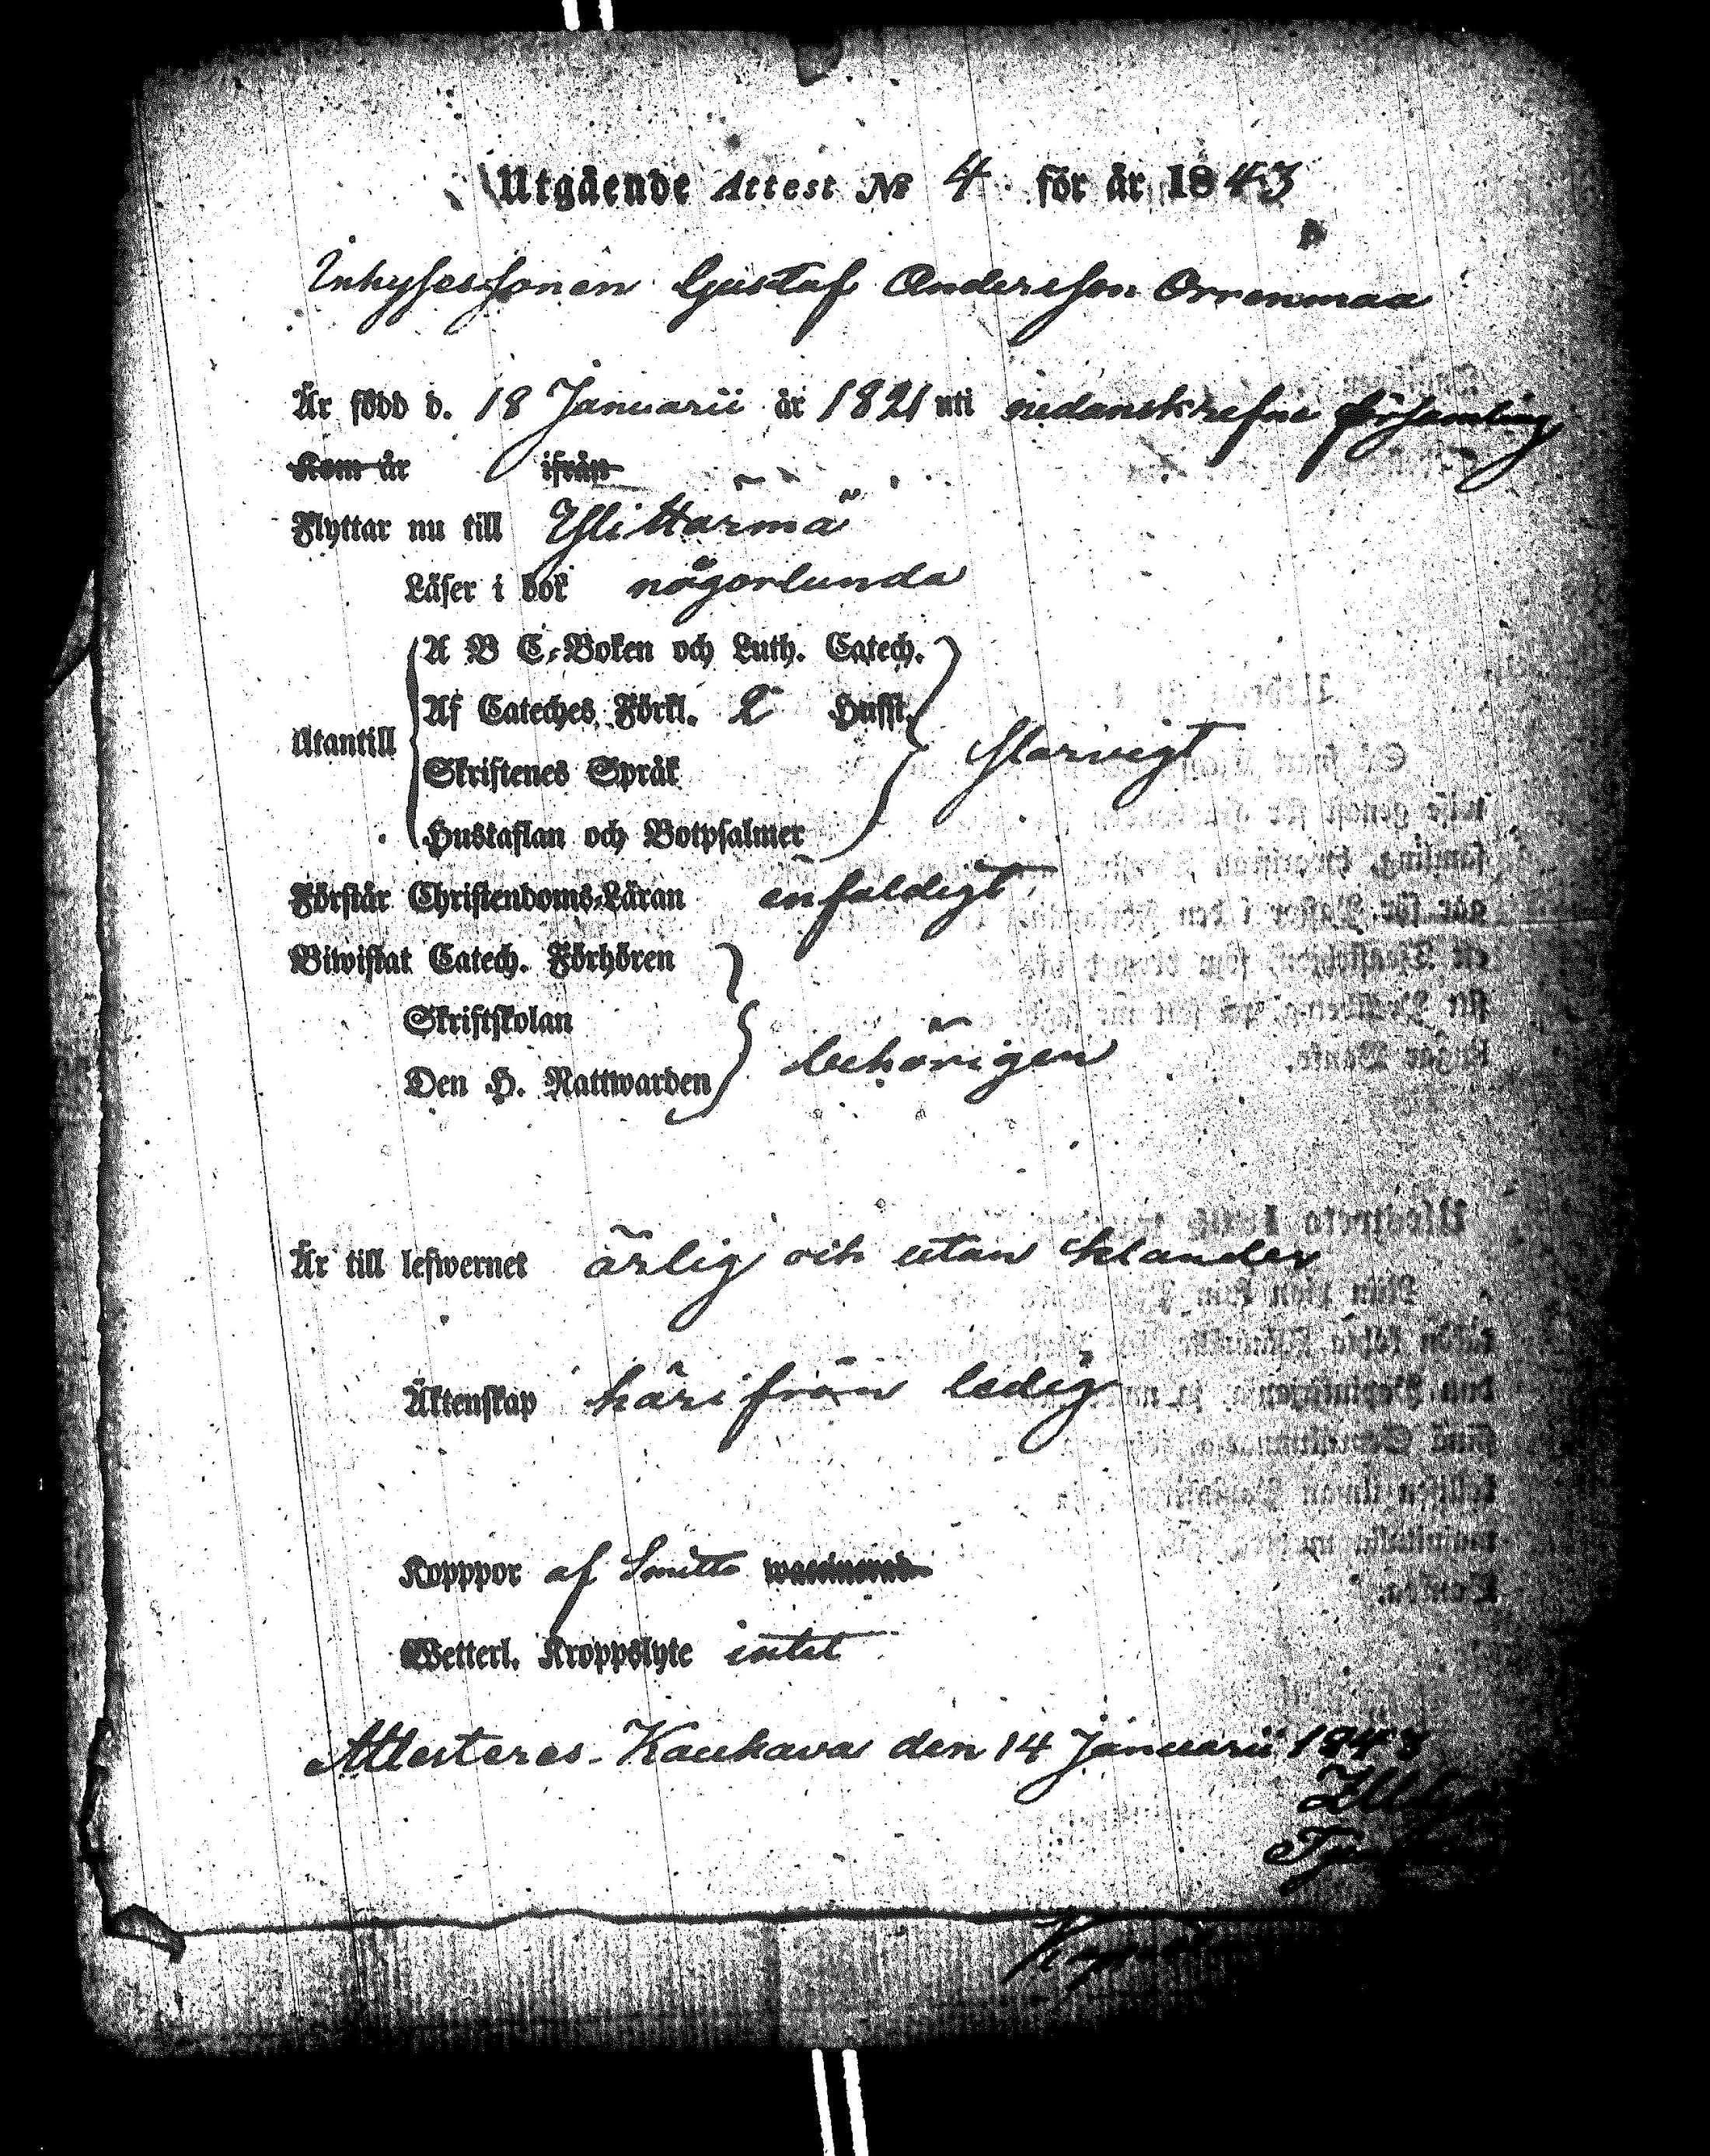 Utgående Attest № 4 för år 1843
Inhysessonen Gustaf Andersson Orrenmaa
Är född d. 18 Januarii år 1821 uti nedanskrefne församling
Kom år ifrån
Flyttar nu till Ylihärmä
Läser i bok någorlunda
A B C-Boken och Luth. Catech.
Af Cateches Förkl. 2 Hufst.
Utantill
Skriftenes Språk
Hustaflan och Botpsalmer
Förstår Christendoms-Läran enfaldigt
Biwistat Catech. Förhören
Skriftskolan
Den H. Nattwarden behörigen
Är till lefwernet ärlig och utan klander
Äktenskap härifrån ledig
Kopppor af Smitto waccinerad
Wetterl. Kroppslyte intet
Attesteres. Kauhava den 14 Januarii 1843